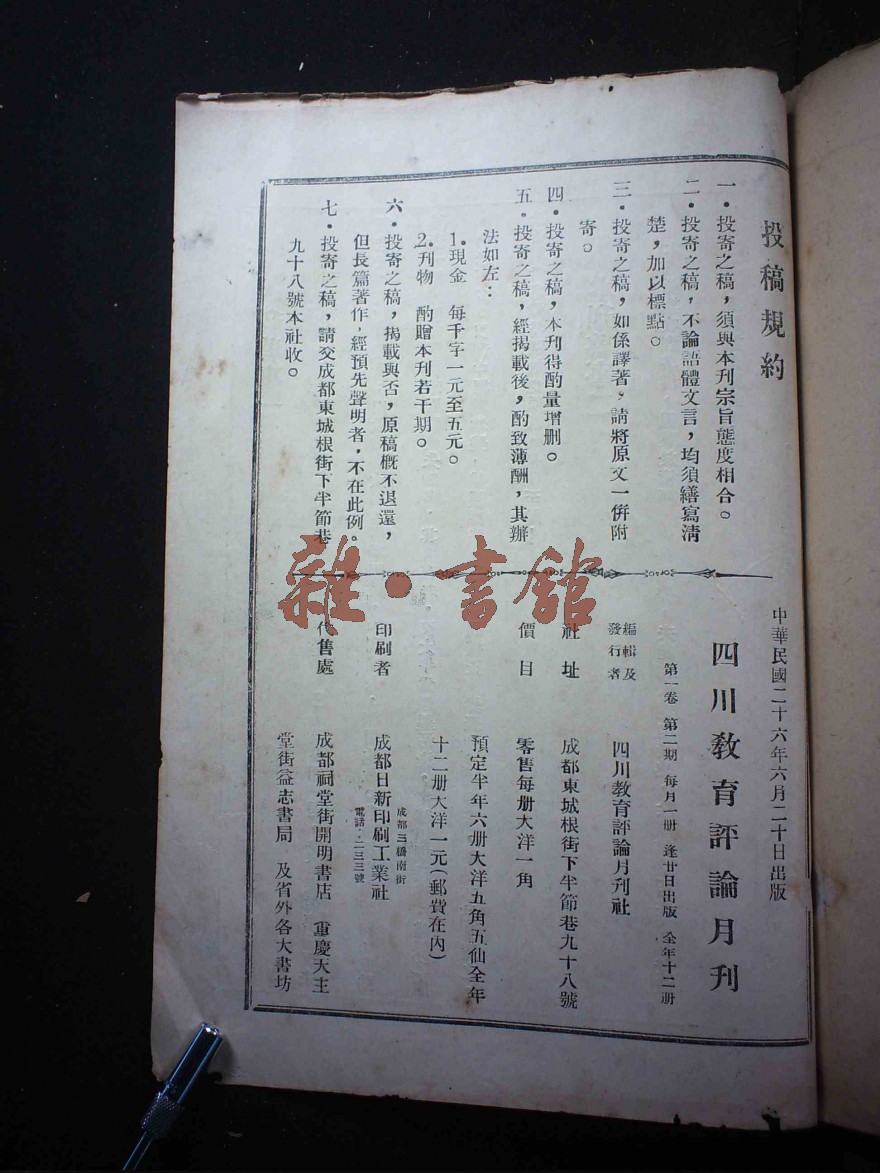 投稿規約
一．投寄之稿，須與本刊宗旨態度相合。
二．投寄之稿，不論語體文言，均須繕寫清
楚，加以標點。
三．投寄之稿，如係譯著，請將原文一併附
寄。
四．投寄之稿，本刊得酌量增刪。
五．投寄之稿，經揭載後，酌致薄酬，其辦
法如左：
1.現金　每千字一元至五元。
2.刊物　酌贈本刊若干期。
六．投寄之稿，揭載與否，原稿概不退還，
但長篇著作，經預先聲明者，不在此例。
七．投寄之稿，請交成都東城根街下半節巷
九十八號本社收。
中華民國二十六年六月二十日出版
四川教育評論月刊
第一卷　第二期　每月一册　逢廿日出版　全年十二册
編輯及
發行者　四川教育評論月刊社
社址　成都東城根街下半節巷九十八號
價目　零售每册大洋一角
預定半年六册大洋五角五仙全年
十二册大洋一元（郵費在內）
印刷者　成都日新印刷工業社
成都三橋南街
電話．二三三號
代售處　成都祠堂街開明書店　重慶天主
堂街益志書局　及省外各大書坊
雜·書館